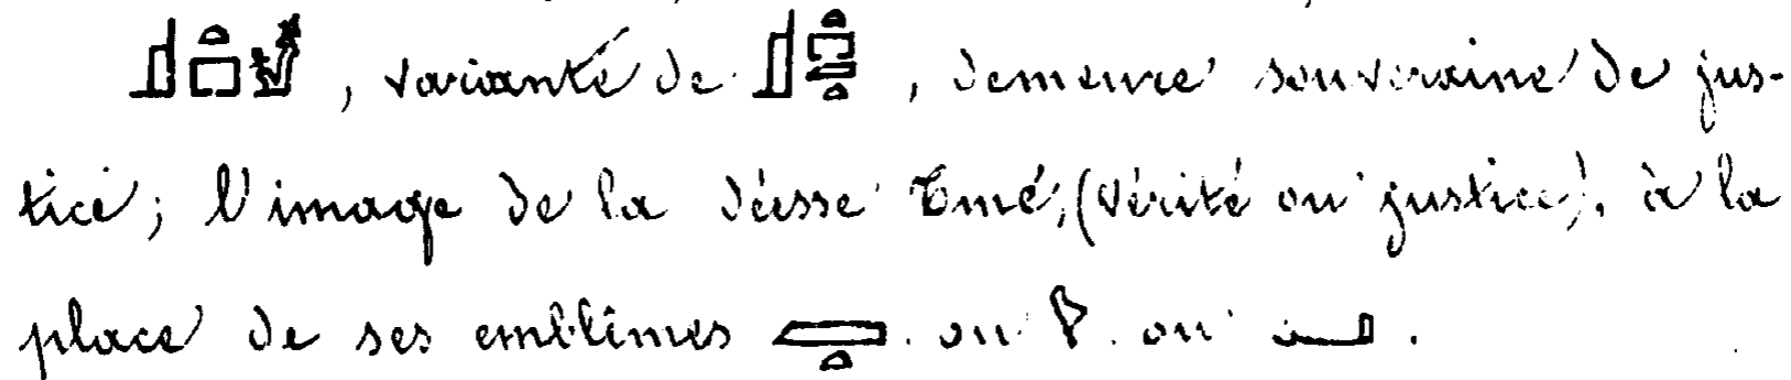 , variante de , demeure souveraine de jus-
tice; l'image de la déesse Tmé, (vérité ou justice), à la
place de ses emblèmes . ou . ou .